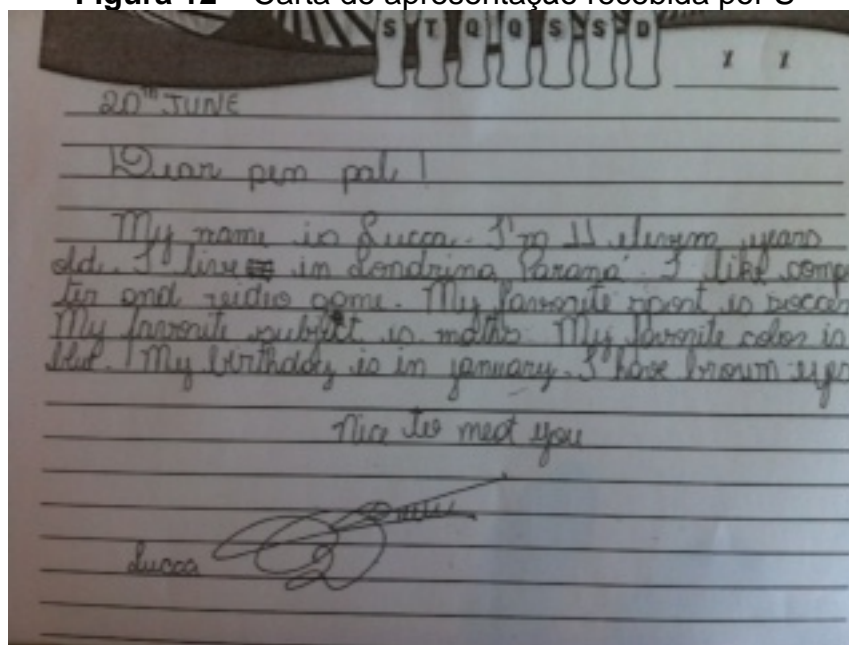 Figura 12 – Carta de apresentação recebida por S
S T Q Q S S D
/ /
20TH JUNE
Dear pen pal!
My name is Lucca. I'm 11 eleven years
old. I live in Londrina Paraná. I like compu
ter and video game. My favorite sport is soccer
My favorite subject is maths. My favorite color is
blue. My birthday is in january. I have brown eyes
Nice to meet you
Lucca